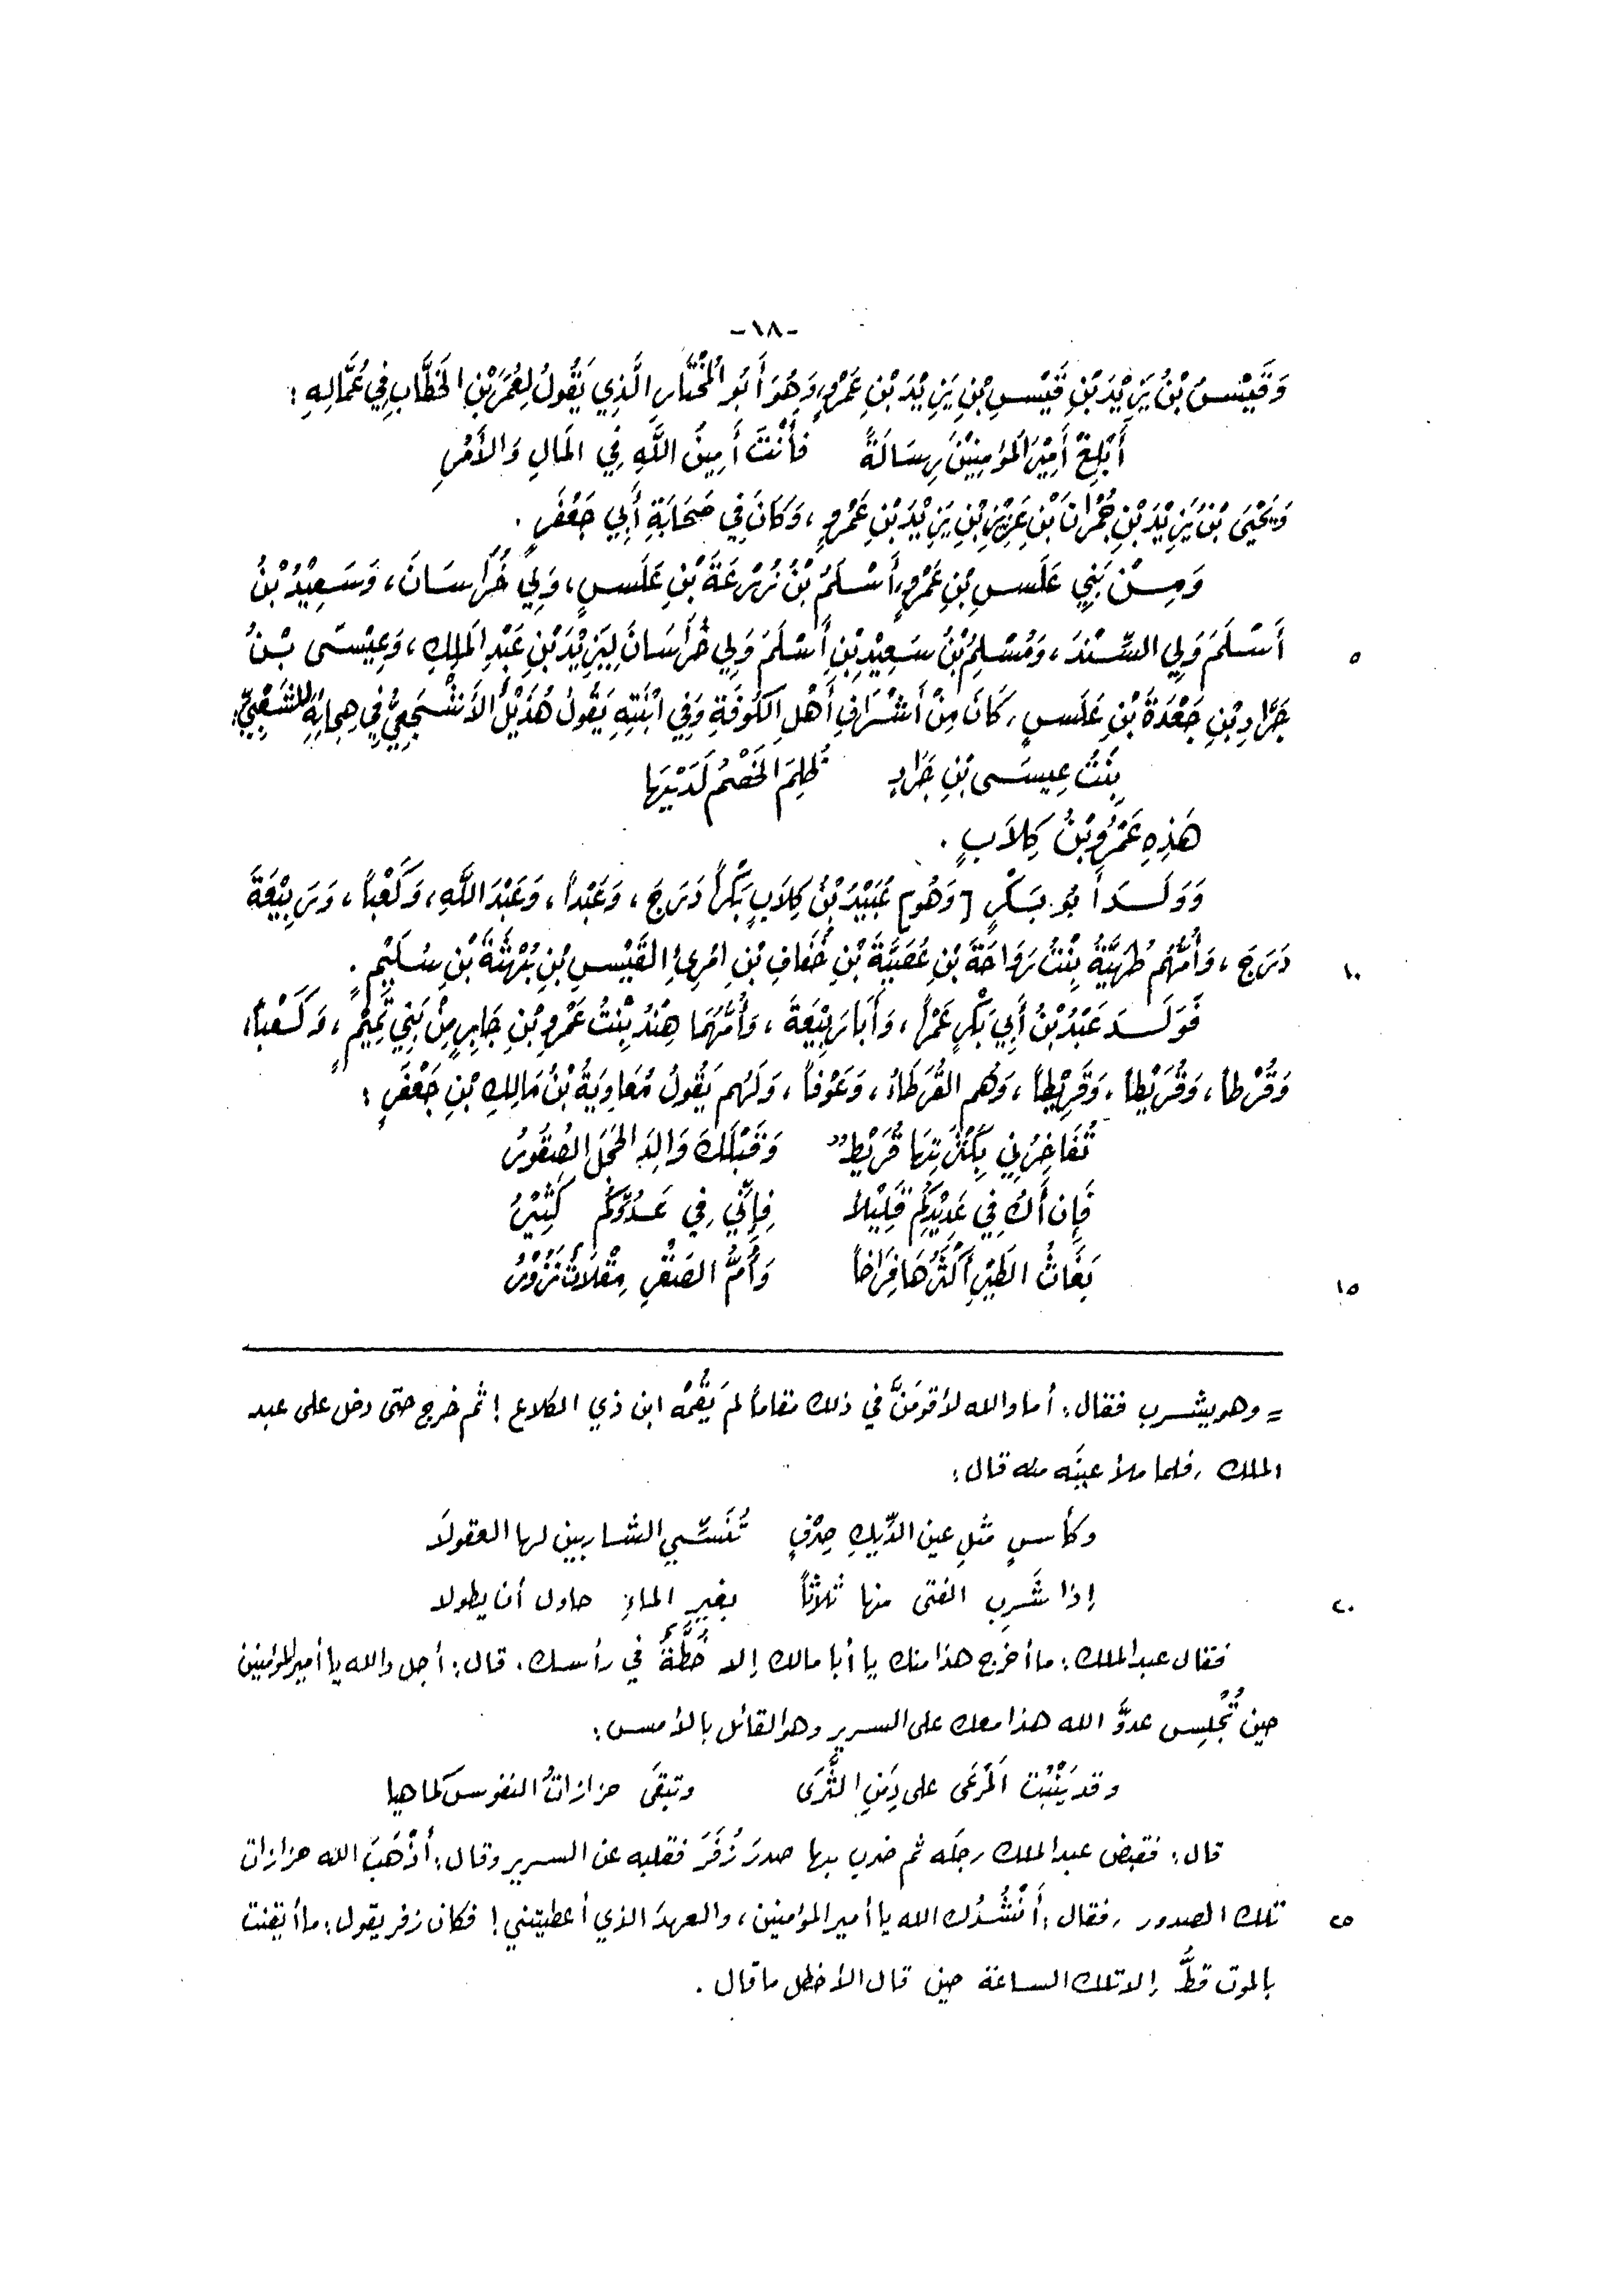 -١٨-
وَقَيْسُ بْنُ يَزِيْدَ بْنِ قَيْسِ بْنِ يَزِيْدَ بْنِ عَمْرٍو، وَهُوَ أَبُو الْمُخْتَارِ الَّذِي يَقُولُ لِعُمَرَ بْنِ الخَطَّابِ فِي عُمَّالِهِ :
أَبْلِغْ أَمِيْرَ الْمُؤمِنِيْنَ رِسَالَةً فَأَنْتَ أَمِينُ اللَّهِ فِي المَالِ وَالأَمْرِ
وَيَحْيَى بْنُ يَزِيْدَ بْنِ حُمْرَانَ بْنِ عَزِيْزِ بْنِ يَزِيْدَ بْنِ عَمْرٍو، وَكَانَ فِي صَحَابَةِ أَبِي جَعْفَرٍ .
وَمِنْ بَنِي عَلَسِ بْنِ عَمْرٍو، أَسْلَمُ بْنُ زُرْعَةَ بْنِ عَلَسٍ، وَلِيَ خُرَاسَانَ، وَسَعِيْدُ بْنُ
٥ أَسْلَمَ وَلِي السِّنْدَ، وَمُسْلِمُ بْنُ سَعِيْدِ بْنِ أَسْلَمَ وَلِي خُرَاسَانَ لِيَزِيْدَ بْنِ عَبْدِ المَلِكِ، وَعِيْسَى بْنُ
جَرَادِ بْنِ جَعْدَةَ بْنِ عَلَسٍ، كَانَ مِنْ أَشْرَافِ أَهْلِ الكُوفَةِ وَفِي ابْنَتِهِ يَقُولُ هُذَيْلُ الأَشْجَعِيُّ فِي هِجَائِهِ لِلشَّعْبِيِّ:
بِنْتُ عِيسَى بْنِ جَرَادٍ ظُلِمَ الخَصْمُ لَدَيْهَا
هَذِهِ عَمْرُو بْنُ كِلاَبٍ .
وَوَلَدَ أَبُو بَكْرٍ [وَهُو] عُبَيْدُ بْنُ كِلاَبٍ بَكْراً دَرَجَ، وَعَبْداً، وَعَبْدَ اللَّهِ، وَكَعْباً، وَرَبِيْعَةَ
١٠ دَرَجَ، وَأُمُّهُم طُهَيَّةُ بِنْتُ رَوَاحَةَ بْنِ عُصَيَّةَ بْنِ خُفَافِ بْنِ امْرِئِ القَيْسِ بْنِ بُهْثَةَ بْنِ سُلَيْمٍ .
فَوَلَدَ عَبْدُ بْنُ أَبِي بَكْرٍ عَمْراً، وَأَبَا رَبِيْعَةَ، وَأُمُّهُمَا هِنْدُ بِنْتُ عَمْرِو بْنِ جَابِرٍ مِنْ بَنِي تَمِيْمٍ، وَكَعْباً،
وَقُرْطاً، وَقُرَيْطاً، وَقَرِيْطاً، وَهُم القُرَطَاءُ، وَعَوْفاً، وَلَهُم يَقُولُ مُعَاوِيَةُ بْنُ مَالِكِ بْنِ جَعْفَرٍ :
تُفَاخِرُنِي بِكَثْرَتِهَا قُرَيْطٌ وَقَبْلَكَ وَالِدَ الحَجَلِ الصُقُورُ
فَإِن أَكُ فِي عَدِيْدِكُم قَلِيْلاً فَإِنِّي فِي عَدُوِّكُم كَثِيْرُ
١٥ بَغَاثُ الطَيْرِ أَكْثَرُهَا فِرَاخاً وَأُمُّ الصَقْرِ مِقْلاَتٌ نَزُوْرُ
= وهو يشرب فقال: أما والله لأقومَنَّ في ذلك مقاماً لم يَقُمْهُ ابن ذي الكلاع ! ثم خرج حتى دخل على عبد
الملك، فلما ملأ عينَه منه قال:
وكأسٍ مثلِ عين الدِّيكِ صِرْفٍ تُنَسِّي الشاربين لها العقولاَ
٢٠ إذا شَرِبَ الفتى منها ثلاثاً بغيرِ الماءِ حاول أن يطولا
فقال عبد الملك: ما أخرج هذا منك يا أبا مالك إلا خُطَّةٌ في رأسك. قال: أجل والله يا أمير المؤمنين
حين تُجْلِس عدوَّ الله هذا معك على السرير وهو القائل بالأمس:
وقد يَنْبُت المَرْعَى على دِمَنِ الثَّرَى وتبقَى حزازاتُ النفوس كما هيا
قال: فقبض عبد الملك رجلَه ثم ضرب بها صدرَ زُفَرَ فقلبه عن السرير وقال: أذْهَبَ الله حزازات
٢٥ تلك الصدور، فقال: أَنْشُدُك الله يا أمير المؤمنين، والعهدَ الذي أعطيتني! فكان زفر يقول: ما أيقنت
بالموت قطُّ إلا تلك الساعة حين قال الأخطل ما قال .